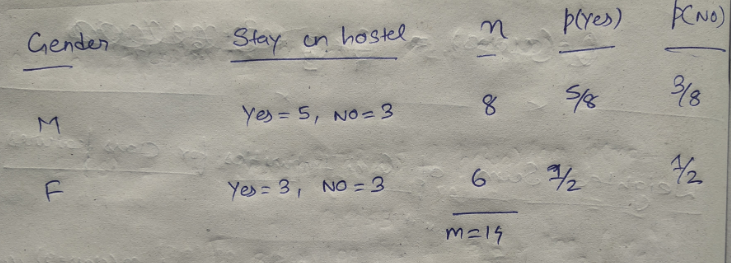 Gender Stay in hostel n p(Yes) p(No)
M Yes = 5, NO = 3 8 5/8 3/8
F Yes = 3, NO = 3 6 1/2 1/2
m = 14